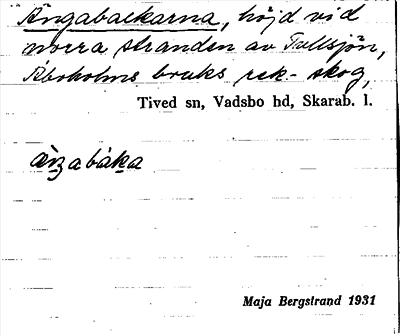 Ängabackarna, höjd vid
norra stranden av Tallsjön,
Åboholms bruks rek.-skog,
Tived sn, Vadsbo hd, Skarab. l.
Maja Bergstrand 1931